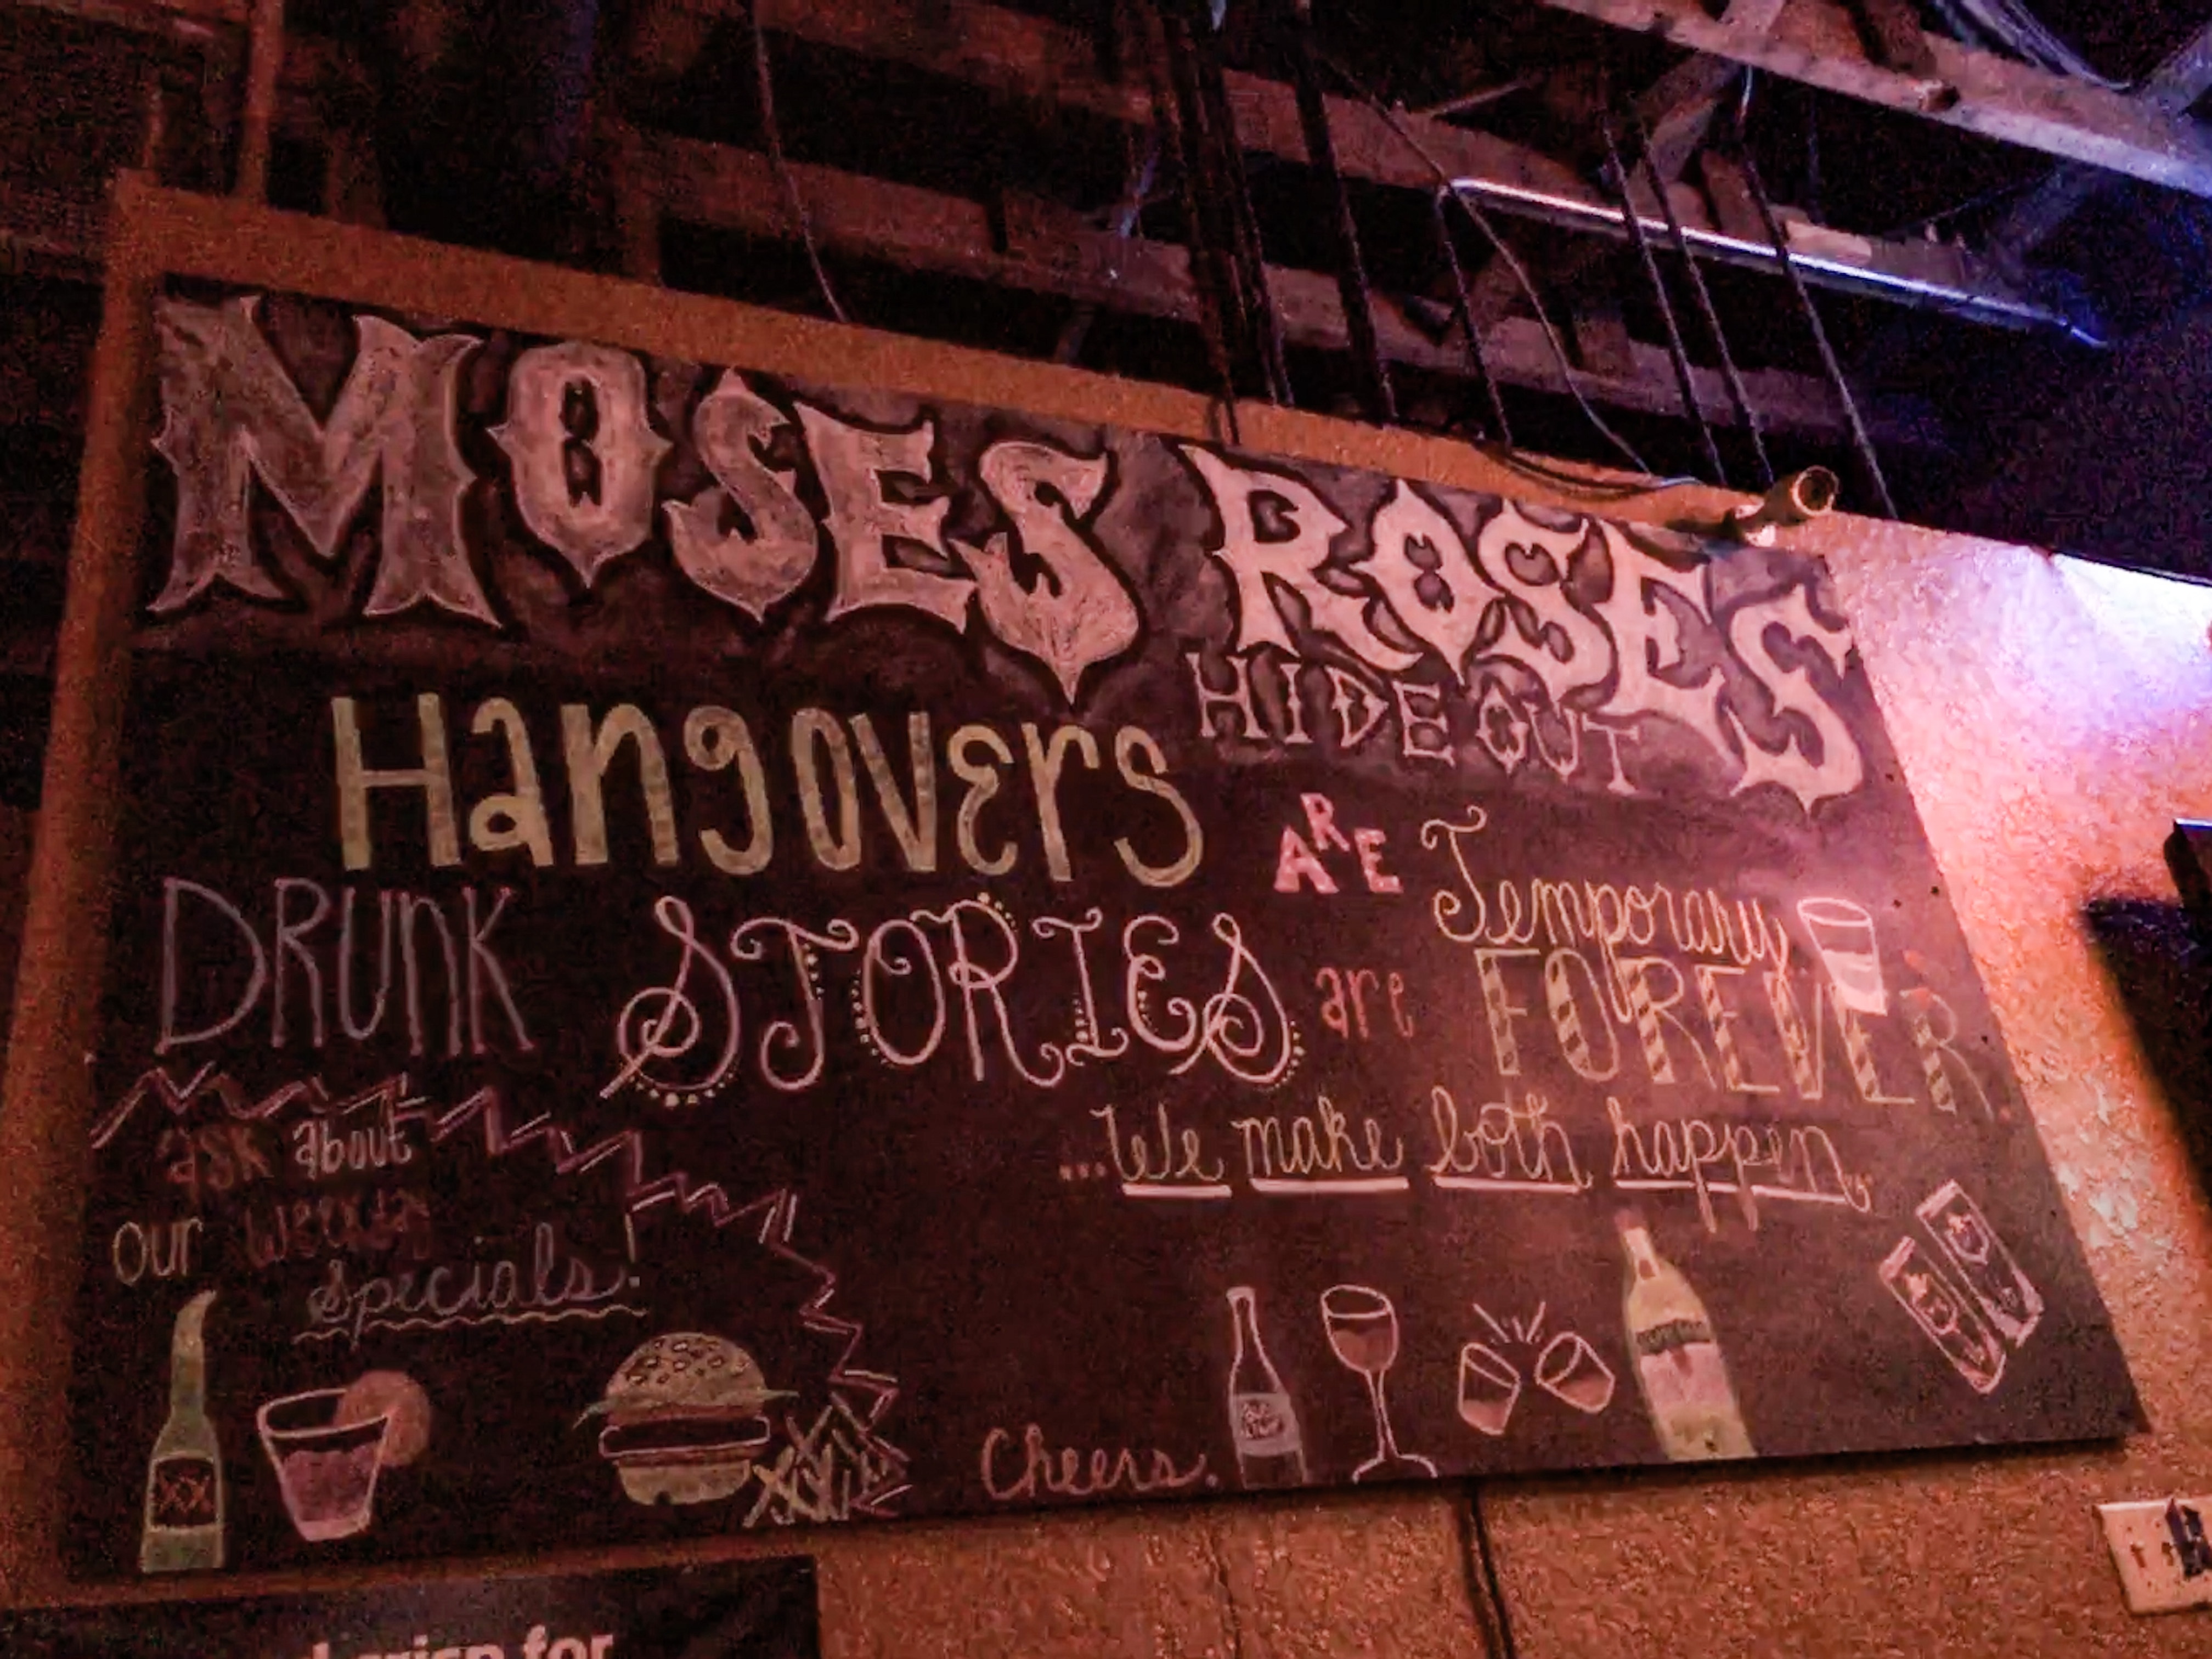 MOSES ROSES
HIDEOUT
Hangovers ARE Temporary
DRUNK STORIES are FOREVER.
...We make both happen.
ask about
our weekly
specials!
XX
Cheers.
for